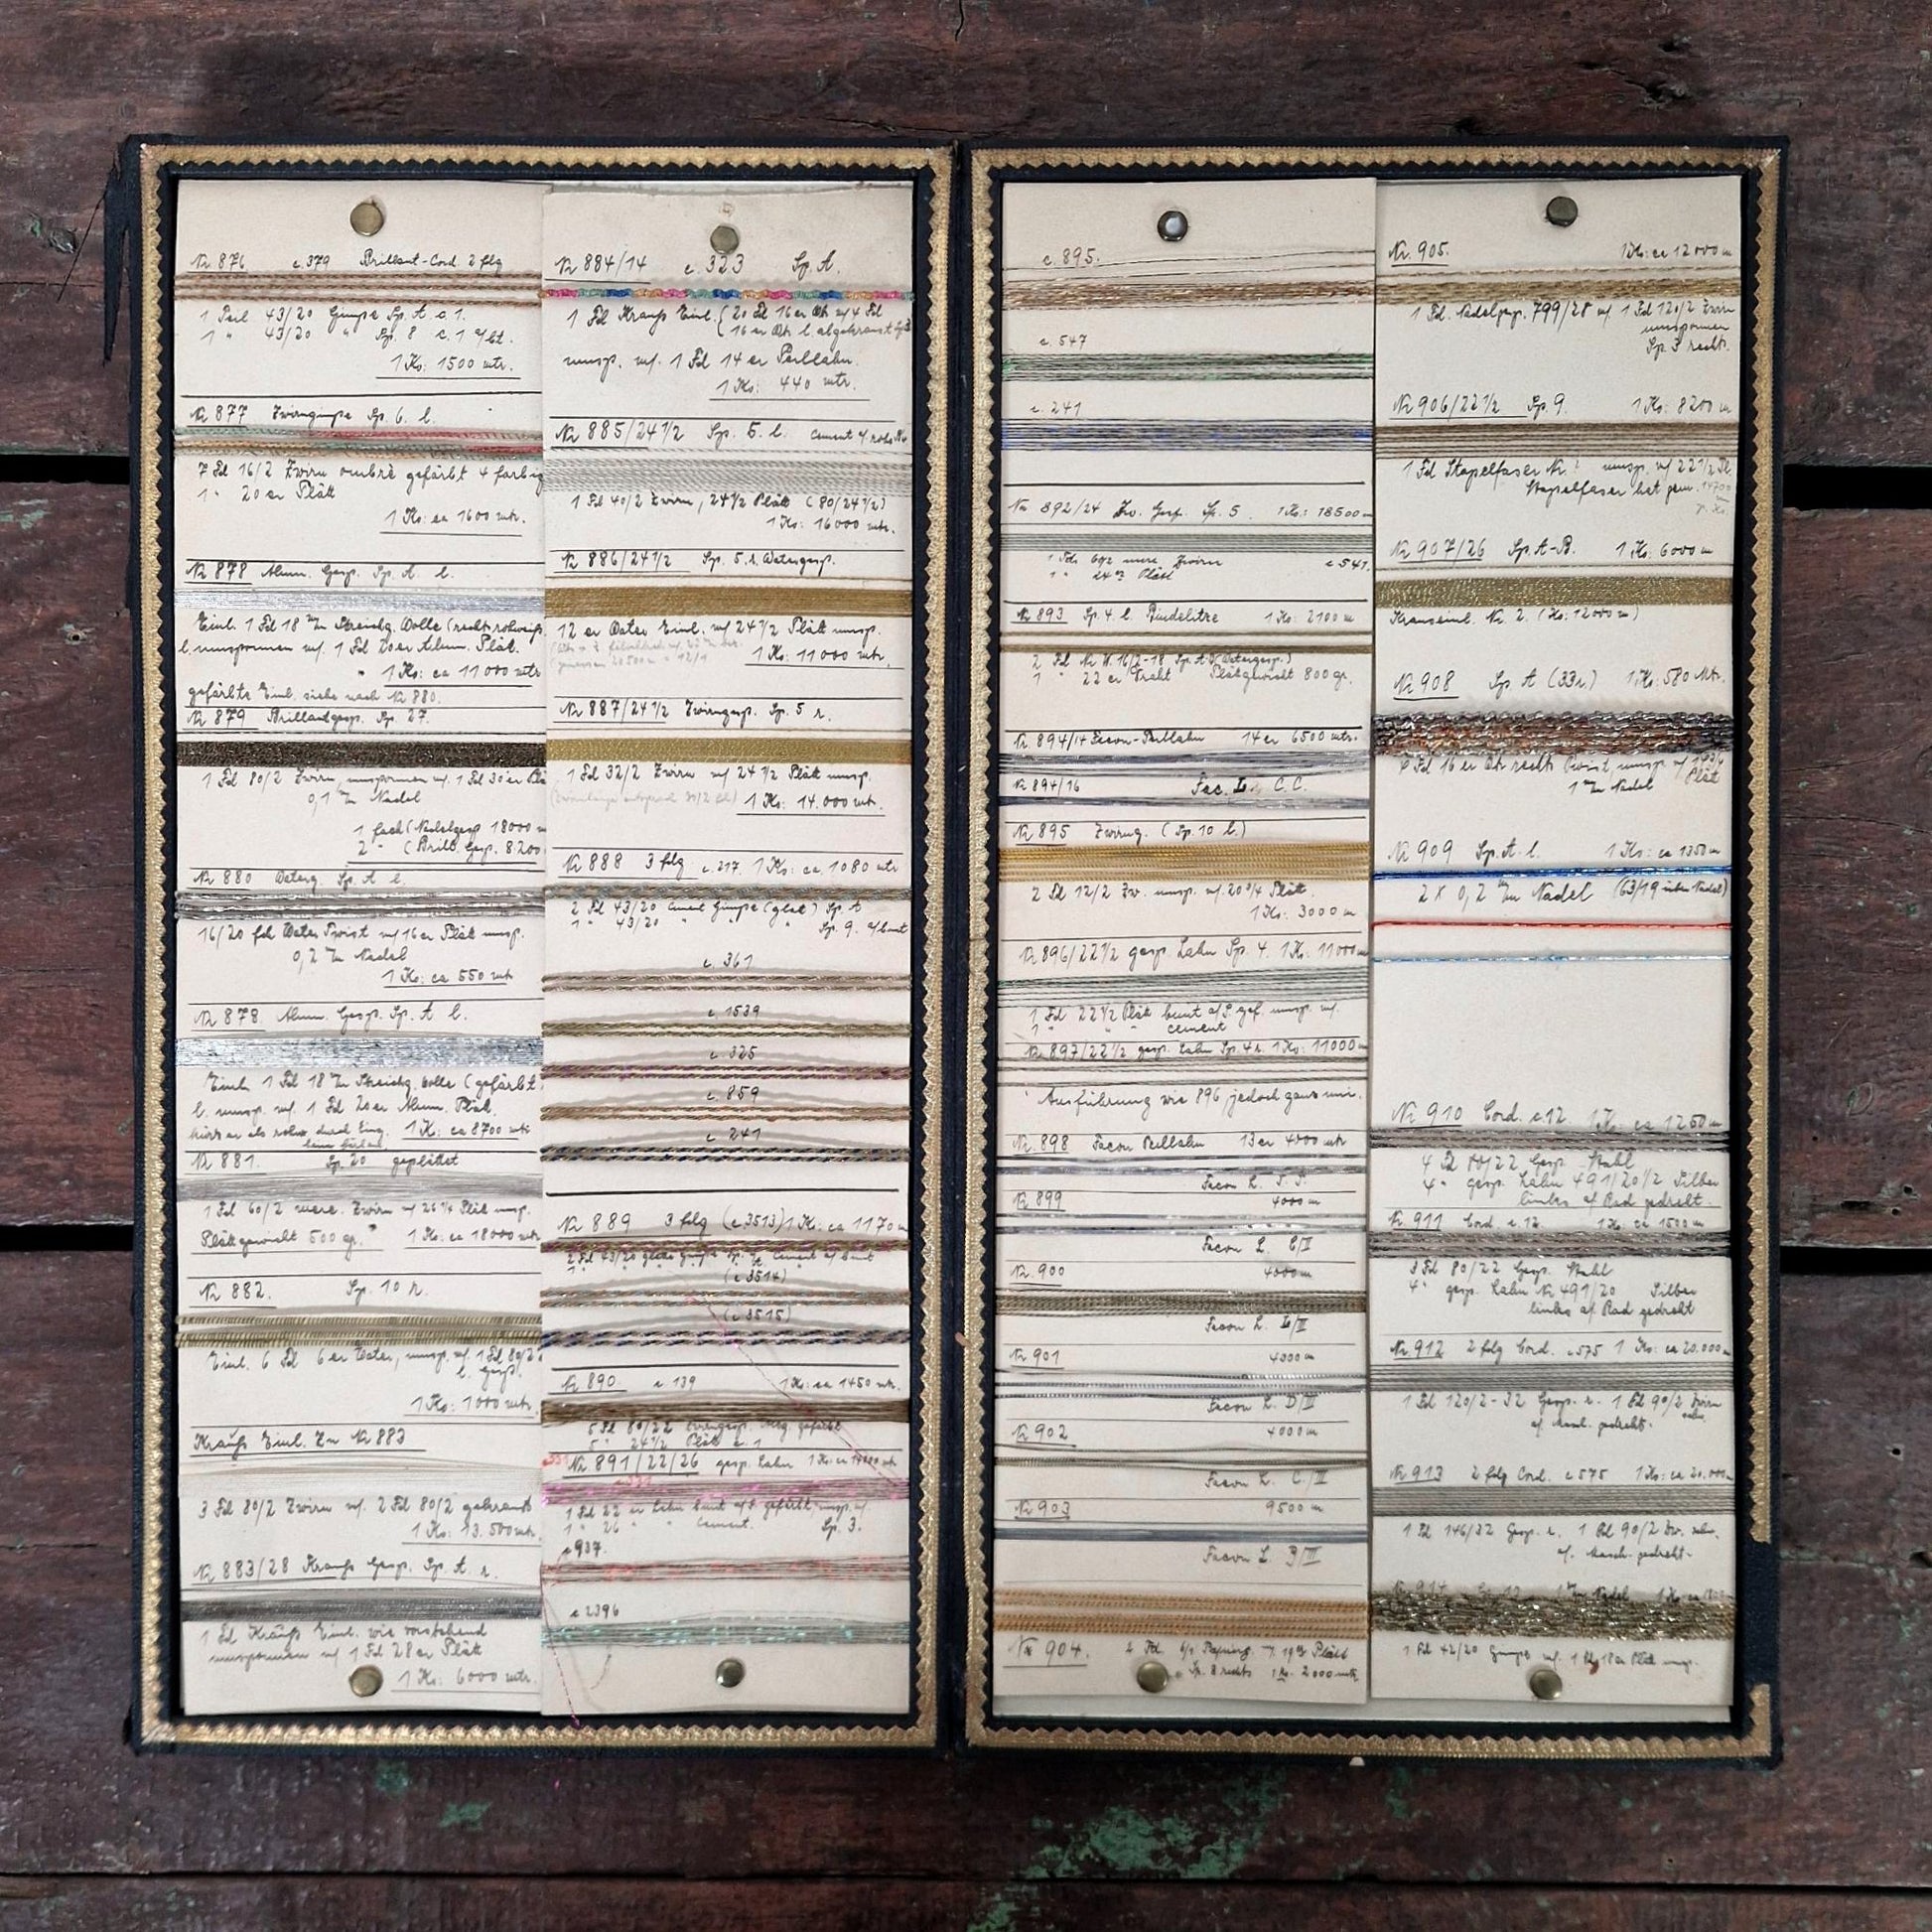 Nr 876 c.379 Brillant-Cord. 2 flg
1 Teil 43/20 Gimpe Sp. A c.1.
1 " 43/20 " Sp. 8 c.1
1 Ko: 1500 mtr.
Nr 877 Zwirngimpe Sp. 6. l.
7 Fd 16/2 Zwirn ombrè gefärbt 4 farbig
1 " 20er Plätt
1 Ko: ca 1600 mtr.
Nr 878 Alum. Gesp. Sp. A. l.
Einl. 1 Fd 18 Streichg. Wolle (recht rohweiß
l. umsponnen m/. 1 Fd 20er Alum. Plät.
1 Ko: ca 11000 mtr
gefärbte Einl. siehe nach Nr 880.
Nr 879 Brillantgesp. Sp. 27.
1 Fd 80/2 Zwirn, umsponnen m/. 1 Fd 30er Plä
0,1 Nadel
1 fach (Nadelgesp 18000 m
2 " (Brill. Gesp. 8.200
Nr 880 Waterg. Sp. A l.
16/20 fch Water Twist m/ 16er Plät umsp.
0,2 Nadel
1 Ko: ca 550 mtr
Nr 878. Alum. Gesp. Sp. A l.
Einl. 1 Fd 18 Streichg. Wolle (gefärbt)
l. umsp. m/. 1 Fd 20er Alum. Plät.
1 K: ca 8700 mtr
Nr 881. Sp. 20 geplättet
1 Fd 60/2 merc. Zwirn m/ 26 1/4 Plät umsp.
Plättgewicht 500 gr. 1 Ko: ca 18000 mtr
Nr 882. Sp. 10 r.
Einl. 6 Fd 6er Water, umsp. m/. 1 Fd 80/2
l. Gesp.
1 Ko: 1000 mtr.
Krauß Einl. Zu Nr 883
3 Fd 80/2 Zwirn m/. 2 Fd 80/2 gekraust
1 Ko: 13.500 mtr.
Nr 883/28 Krauß Gesp. Sp. A. r.
1 Fd Krauß Einl. wie vorstehend
umsponnen m/ 1 Fd 28er Plätt
1 Ko: 6000 mtr.
Nr 884/14 c.323 Sp. A.
1 Fd Krauß Einl. (20 Fd 16er m/4 Fd
16er l abgekraust
umsp. m/. 1 Fd 14er Perllahn.
1 Ko: 440 mtr.
Nr 885/24 1/2 Sp. 5. l. Cement
1 Fd 40/2 Zwirn, 24 1/2 Plätt (80/24 1/2)
1 Ko: 16000 mtr.
Nr 886/24 1/2 Sp. 5. r. Watergesp.
12er Water Einl. m/ 24 1/2 Plätt umsp.
1 Ko: 11000 mtr.
Nr 887/24 1/2 Zwirngesp. Sp. 5 r.
1 Fd 32/2 Zwirn m/ 24 1/2 Plätt umsp.
1 Ko: 14.000 mtr.
Nr 888 3 flg c.217. 1 Ko: ca 1080 mtr
2 Fd 43/20 Cement Gimpe (glatt) Sp. A
1 " 43/20 " " Sp. 9.
c. 361
c. 1539
c. 325
c. 859
c. 241
Nr 889 3 flg (c.3513) 1 K: ca 1170 m
2 Fd 43/20 glatte Gimpe
(c 3514)
(c 3515)
Nr 890. c 139 1 Ko: ca 1450 mtr.
5 Fd 80/22 Zwirngesp. gefärbt
5 " 24 1/2 Plätt c. 1
Nr 891/22/26 gesp. Lahn
1 Fd 22er Lahn bunt gefärbt, umsp. m/
1 " 26 " " Cement. Sp. 3.
c 937.
c 2396
c. 895.
c. 547
c. 241
Nr 892/24 Zw. Gesp. Sp. 5. 1 Ko: 18500 m
1 Fd 60/2 merc Zwirn c 541.
1 " 24er Plätt
Nr 893 Sp. 4. l. Rundelitze 1 Ko: 2100 m
1 " 22er Draht Plätgewicht 800 gr.
Nr 894/14 Facon-Perllahn 14er 6500 mtr.
Nr 894/16 Fac. L. C.C.
Nr 895 Zwirng. (Sp. 10 l.)
2 Fd 12/2 Zw. umsp. m/. 20 3/4 Plätt.
1 Ko: 3000 m
Nr 896/22 1/2 gesp. Lahn Sp. 4. 1 Ko: 11000 m
1 Fd 22 1/2 Plät bunt gef. umsp. m/.
1 " " " cement
Nr 897/22 1/2 gesp. Lahn Sp. 4 r. 1 Ko: 11000 m
Ausführung wie 896 jedoch ganz
Nr 898 Facon Perllahn 13er 4000 mtr
Facon L.
Nr 899 4000 m
Facon L. E/II
Nr 900 4000 m
Facon L. L/II
Nr 901 4000 m
Facon L. D/II
Nr 902 4000 m
Facon L. C/II
Nr 903 9500 m
Facon L. B/II
Nr 904. 2 Fd. Plätt
Sp. 8 rechts 1 Ko. 2000 mtr.
Nr. 905. 1 Ko: ca 12000 m
1 Fd. Nadelgesp. 799/28 m/ 1 Fd 120/2 Zwirn
umsponnen
Sp. 3 rechts.
Nr 906/22 1/2 Sp. 9. 1 Ko: 8200 m
1 Fd Stapelfaser Nr. ? umsp. m/ 22 1/2 Pl.
Stapelfaser hat gem. 14700
Nr 907/26 Sp. A-B. 1 Ko: 6000 m
Krauseinl. Nr. 2. (Ko: 12000 m)
Nr 908 Sp A (33r.) 1 Ko: 580 Mtr.
Fd 16er rechts Twist, umsp. m/
1 Nadel Plät
Nr 909 Sp. A. l. 1 Ko: ca 1350 m
2 x 0,2 Nadel (63/19
Nr 910 Cord. c.12. 1 Ko: ca 1250 m
4 Fd 80/22 Gesp. Stahl
4 " gesp. Lahn 491/20 1/2 Silber
links a/ Rad gedreht.
Nr. 911 Cord c. 12. 1 Ko: ca 1500 m
3 Fd 80/22 Gesp. Stahl
4 " gesp. Lahn Nr 491/20 Silber
links a/ Rad gedreht
Nr. 912 2 flg Cord. c 575 1 Ko: ca 20.000 m
1 Fd 120/2-32 Gesp. r. 1 Fd 90/2 Zwirn
a/. Masch. gedreht.
Nr 913 2 flg Cord. c 575 1 Ko: ca 20.000 m
1 Fd 146/32 Gesp. r. 1 Fd 90/2 Zw.
a/. Masch. gedreht.
1 Fd 42/20 Gimpe m/. 1 Fd 18er Plät umsp.